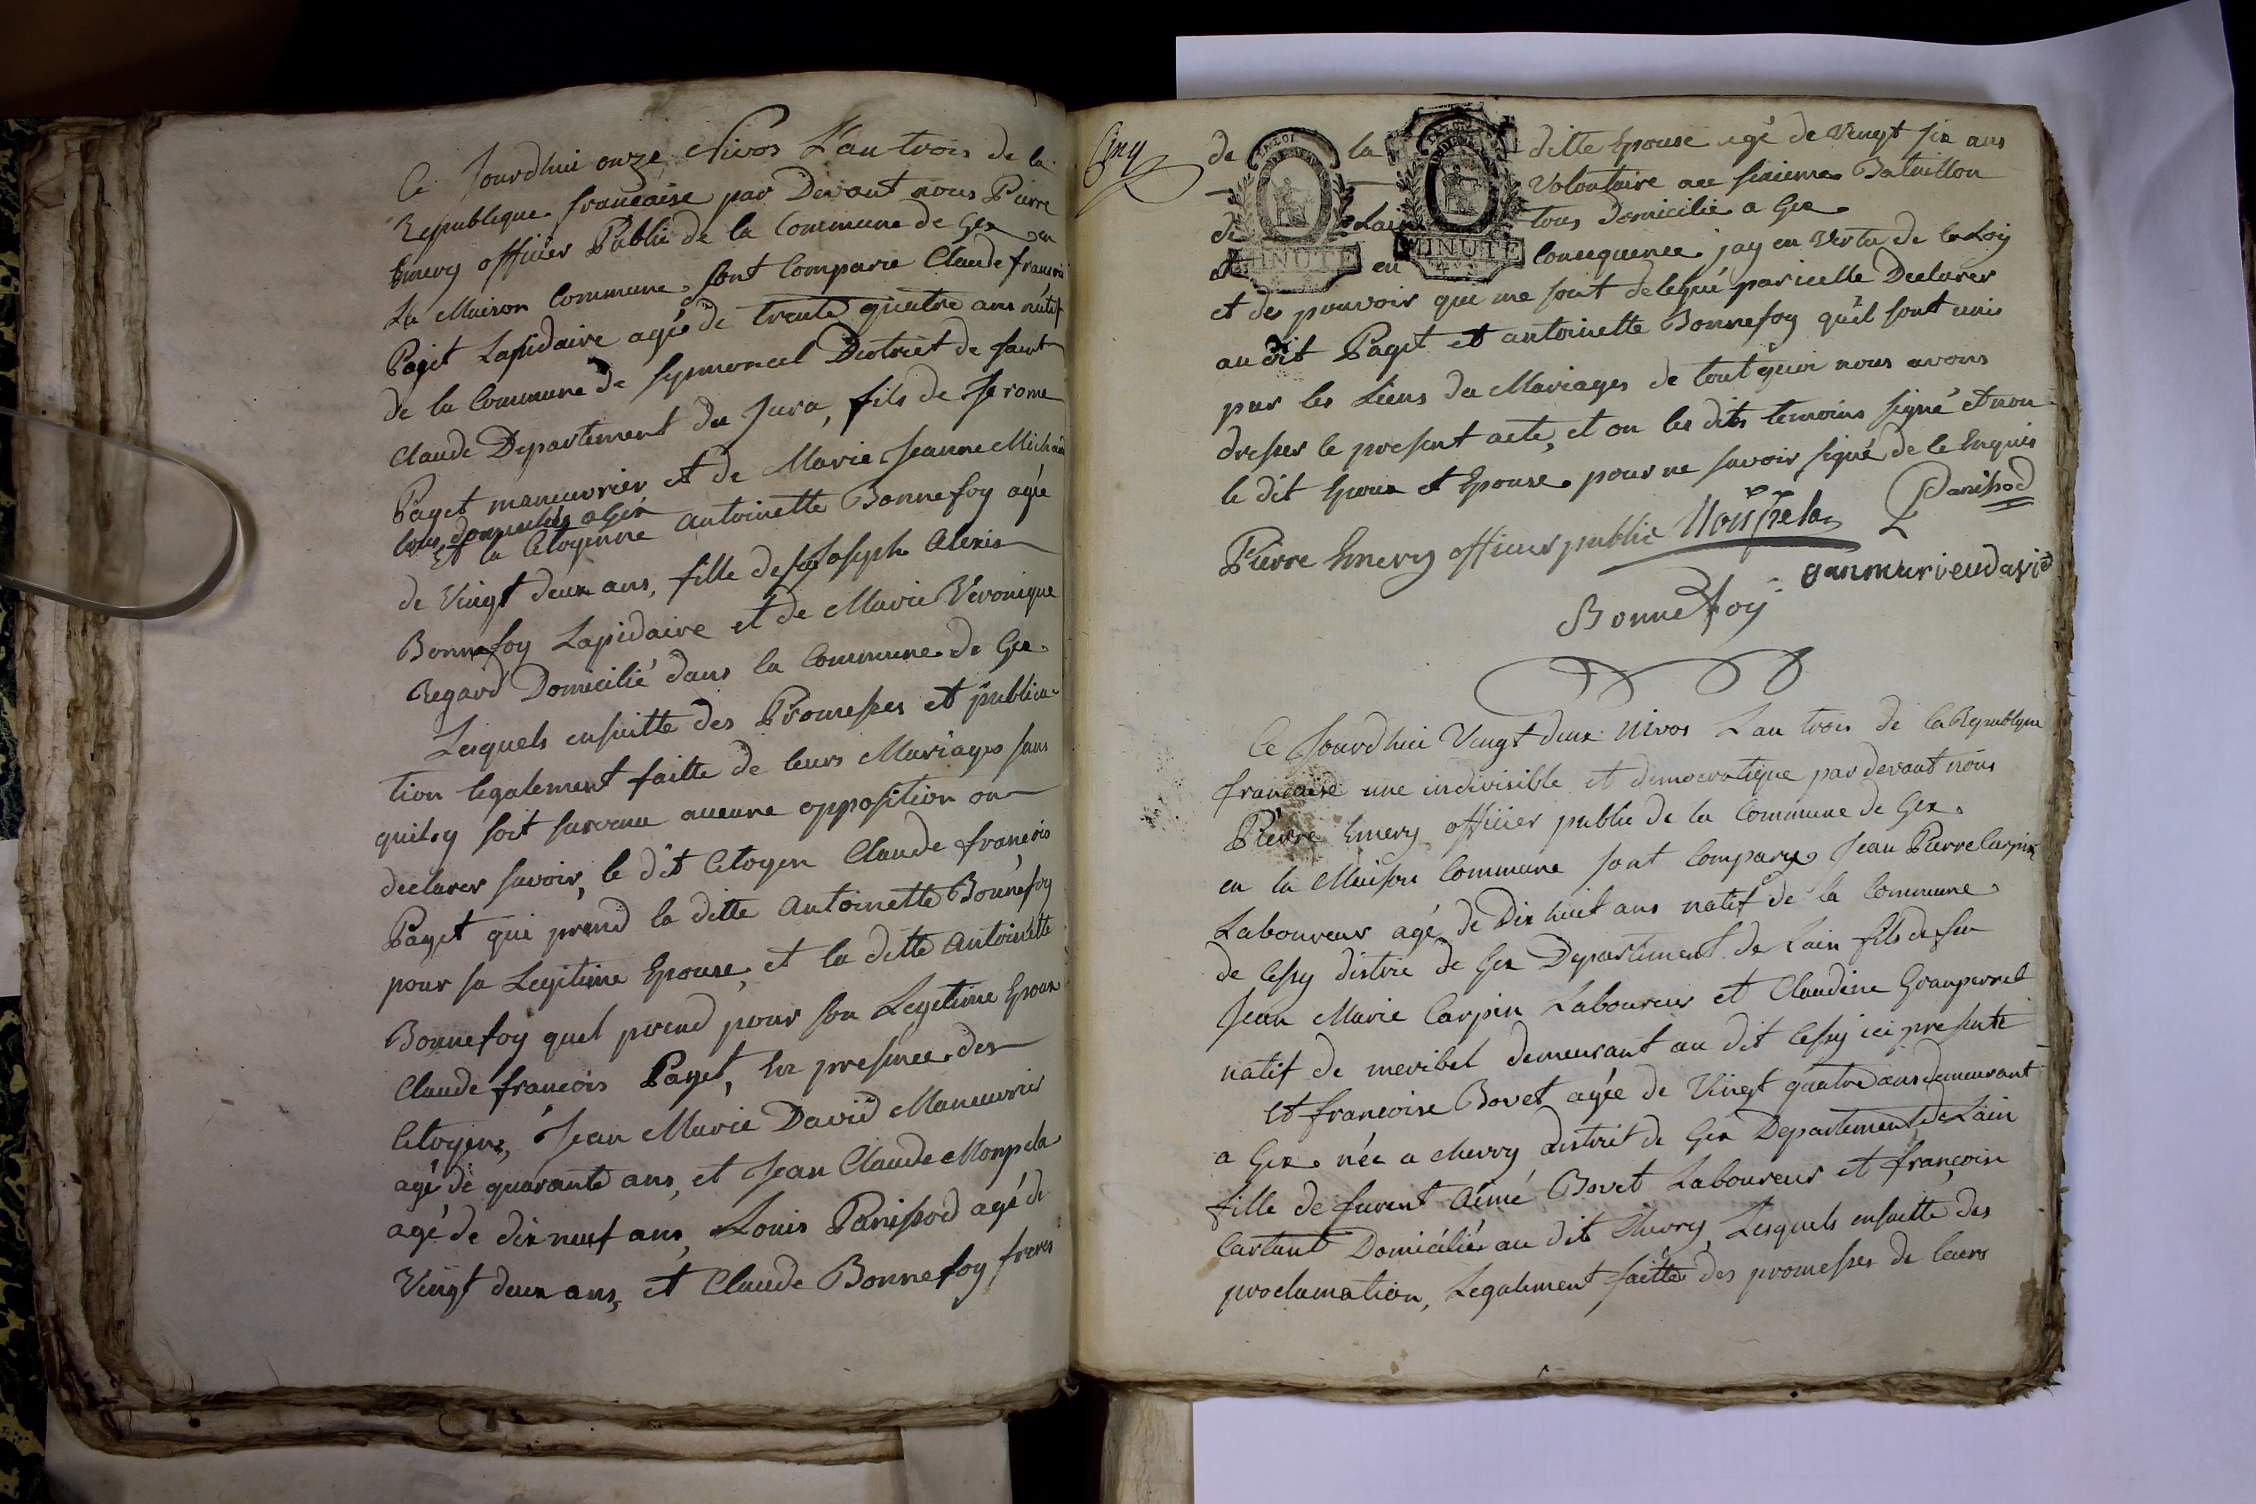 Ce Jourdhui onze Nivos L'an trois de la
Republique francaise par Devant nous Pierre
Emery officier Public de la Commune de Gex en
La Maison Commune, sont Comparu Claude francois
Paget Lapidaire agé de trente quatre ans natif
de la Commune de Septmoncel District de saint
Claude Departement du Jura, fils de Jerome
Paget maneuvrier et de Marie Jeanne Michaud
tous domiciliés a Gex
Et la Citoyenne Antoinette Bonnefoy agée
de Vingt deux ans, fille de Joseph Alexis
Bonnefoy Lapidaire et de Marie Veronique
Regard Domicilié dans la Commune de Gex
Lesquels ensuitte des Promesses et publica-
tion legalement faitte de leurs Mariages sans
quil y soit survenu aucune opposition on
declarer savoir, le dit Citoyen Claude francois
Paget qui prend la ditte Antoinette Bonnefoy
pour sa Legitime Epouse, et la ditte Antoinette
Bonnefoy quel prend pour son Legitime Epoux
Claude francois Paget, En presence des
Citoyens, Jean Marie David Maneuvrier
agé de quarante ans, et Jean Claude Monpela
agé de dix neuf ans, Louis Panissod agé de
Vingt deux ans, et Claude Bonnefoy freres
Cinq
de la ditte Epouse agé de Vingt six ans
Volontaire au sixieme Bataillon
de Lain tous domicilié a Gex
et en Concequence jay en Vertu de la Loy
MINUTE
MINUTE
et des pouvoir que me sont delegué par icelle Declarer
au dit Paget et antoinette Bonnefoy qu'il sont unis
par les Liens du Mariages de tout quoi nous avons
dresser le present acte, et on les dits temoins signé et non
le dit Epoux et Epouse pour ne savoir signé de le Enquis
Pierre Emery officier public Monpela Panissod
Bonnefoy
Ce Jourdhui Vingt deux Nivos L'an trois de la Republique
francaise une indivisible et democratique par devant nous
Pierre Emery officier public de la Commune de Gex
en la Maison Commune sont Comparus Jean Pierre Carpin
Laboureur agé de Dix huit ans natif de la Commune
de Cessy distric de Gex Departement de Lain fils de feu
Jean Marie Carpin Laboureur et Claudine Granperret
natif de meribel demeurant au dit Cessy ici presente
et francoise Bovet agée de Vingt quatre ans demeurant
a Gex née a Chevry district de Gex Departement de Lain
fille de Aimé Bovet Laboureur et françoise
Domiciliés au dit Chevry, Lesquels ensuitte des
proclamation, Legalement faitte des promesses de leurs